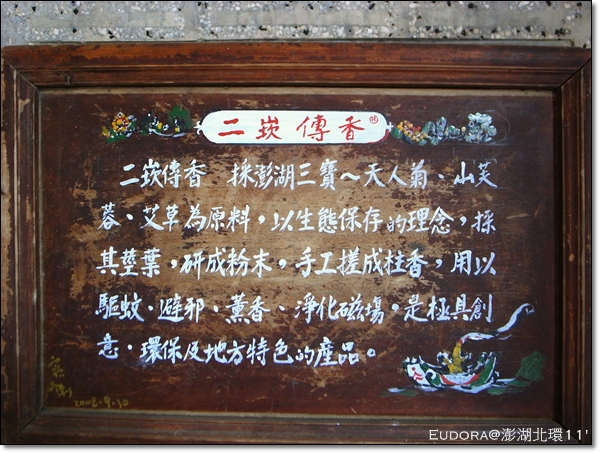 二崁傳香
二崁傳香 採澎湖三寶～天人菊、山芙
蓉、艾草為原料，以生態保存的理念，採
其莖葉，研成粉末，手工搓成柱香，用以
驅蚊．避邪．薰香、淨化磁場。是極具創
意．環保及地方特色的產品。
2002.9.30
EUDORA@澎湖北環11'